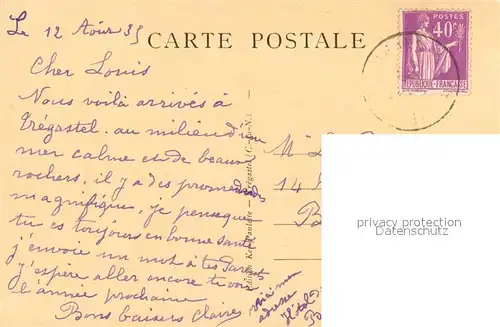 Le 12 Août 35
CARTE POSTALE
POSTES
40c
REPUBLIQUE FRANÇAISE
Cher Louis
Nous voilà arrivés à
Trégastel au milieu d'un
mer calme et de beaux
rochers. il y a des promenades
magnifique, je pense que
tu es toujours en bonne santé
j'envoie un mot à tes Parents
j'espère aller encore te voir
l'année prochaine
Bons baisers Claire
voici mon
adresse
Hôtel
M
14
B
privacy protection